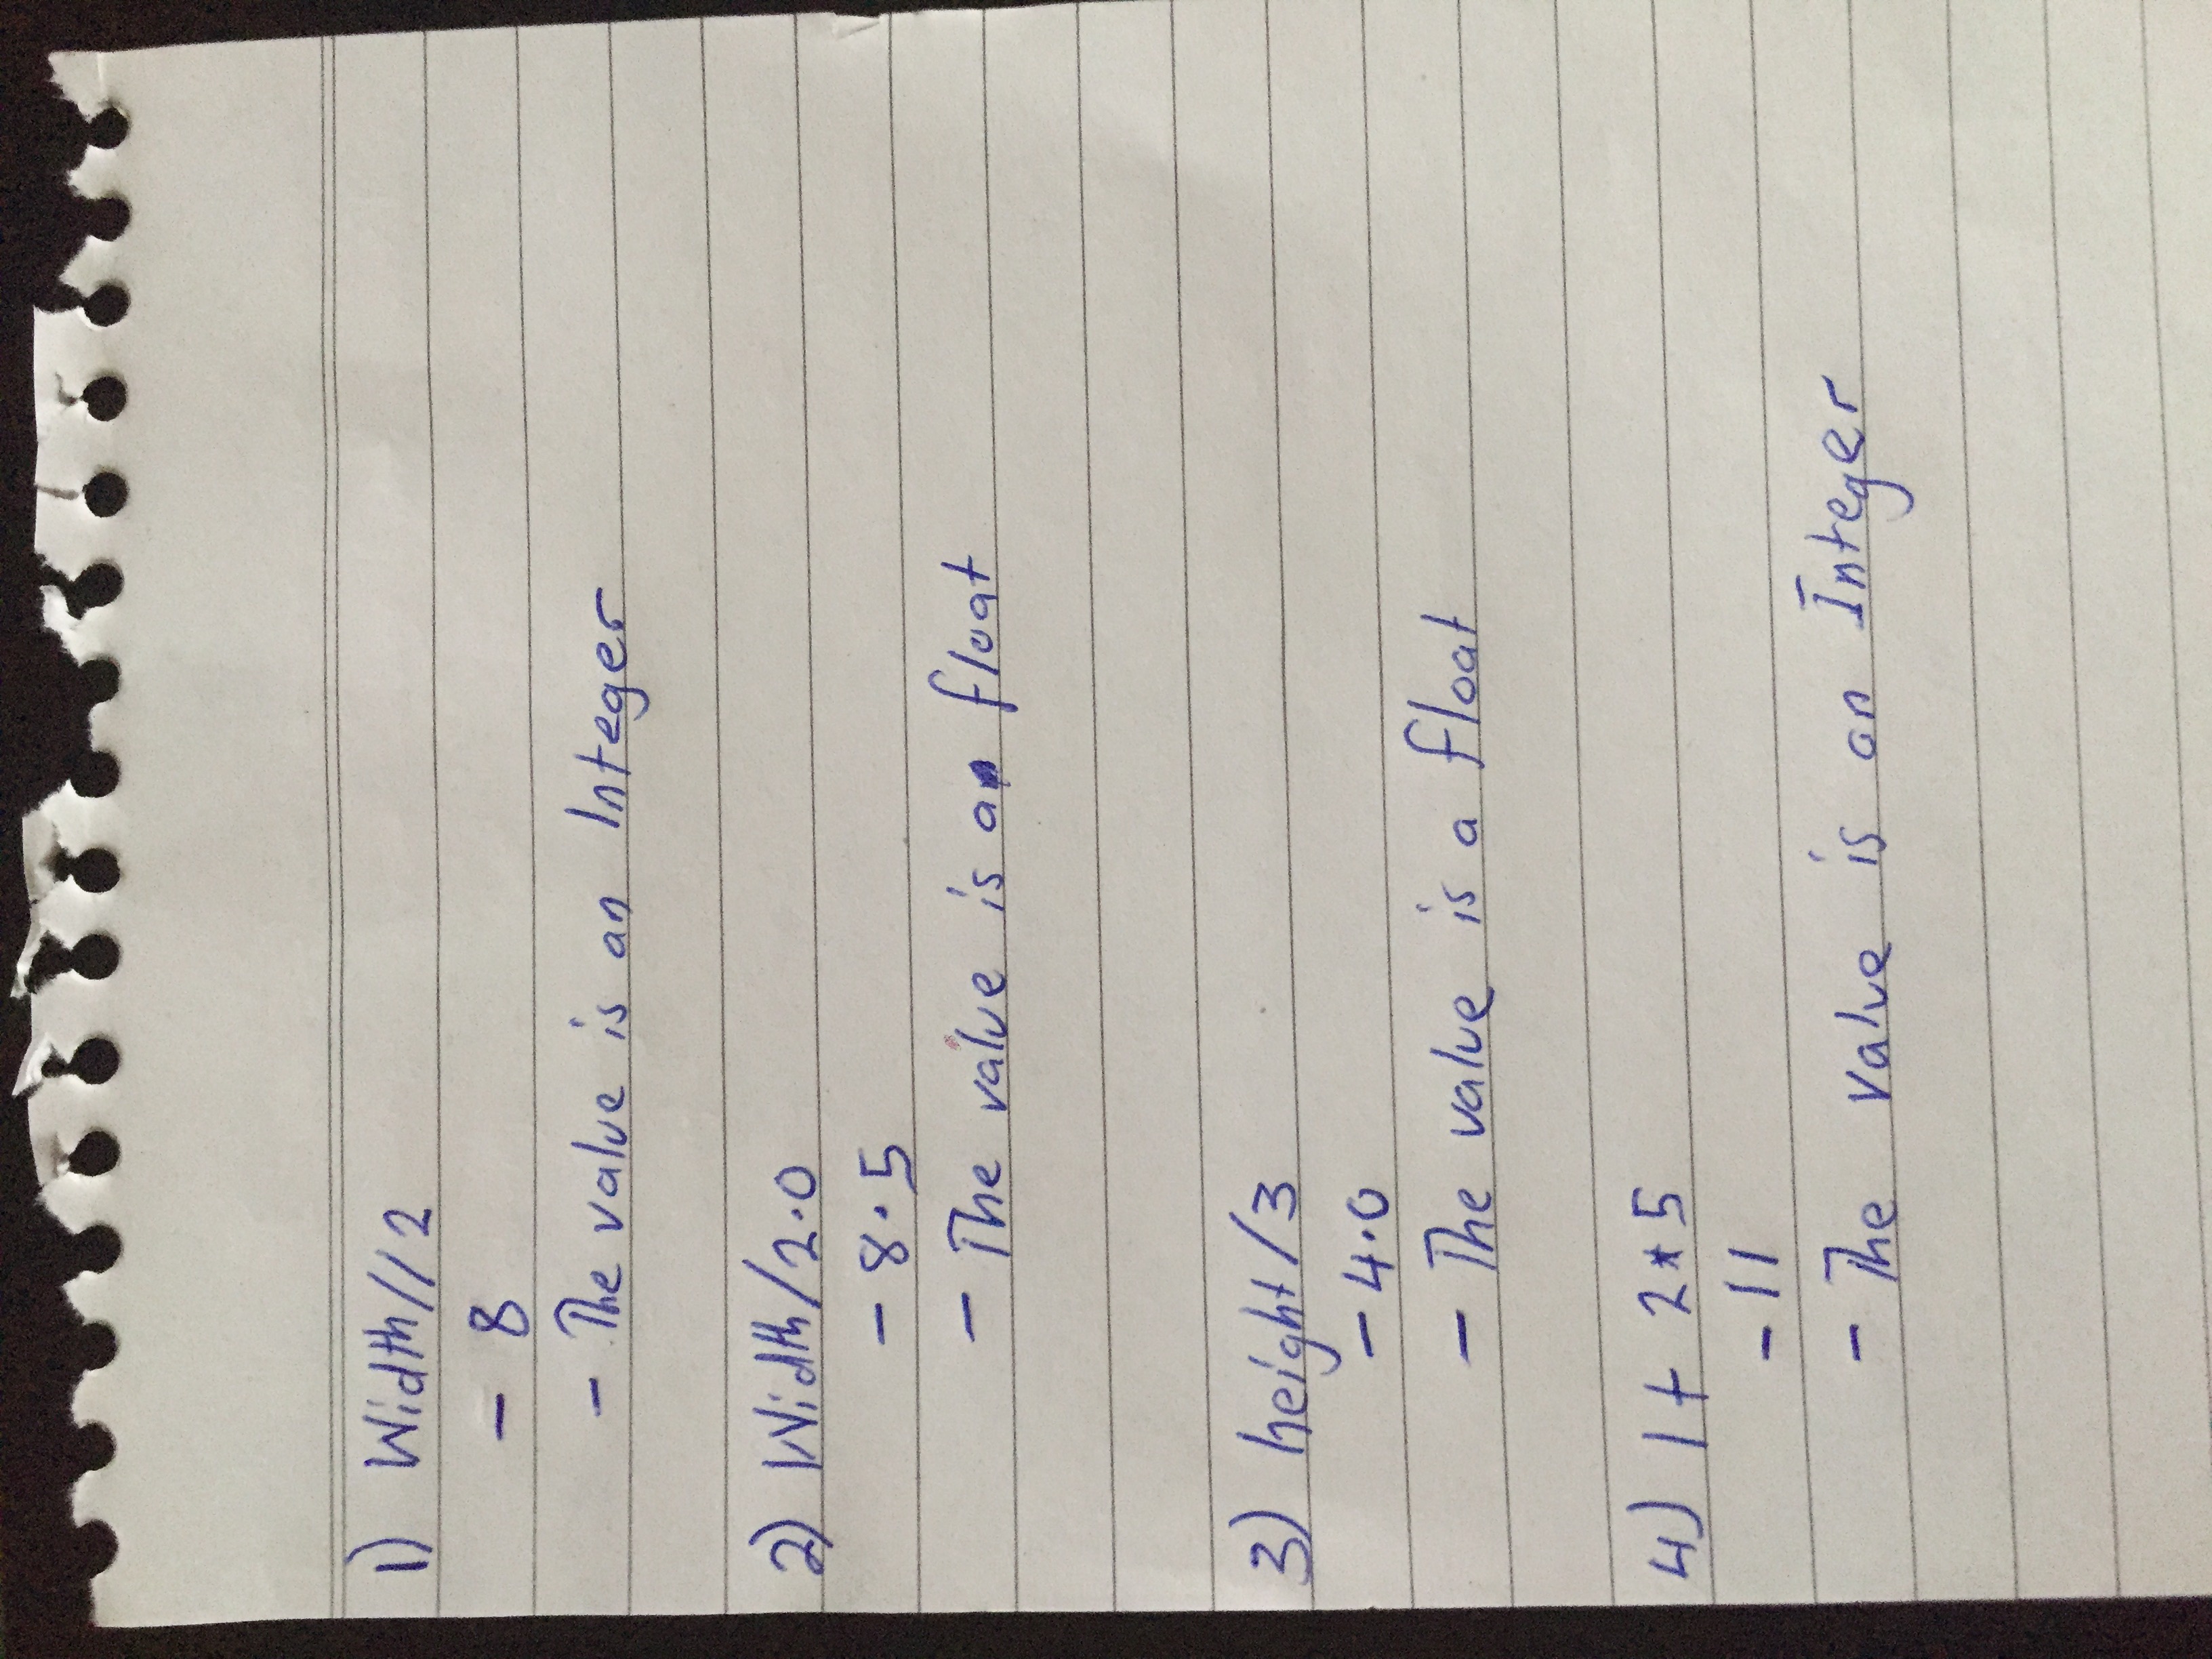 1) Width//2
- 8
- The value is an Integer
2) Width/2.0
- 8.5
- The value is a float
3) height/3
- 4.0
- The value is a float
4) 1+ 2*5
- 11
- The value is an Integer